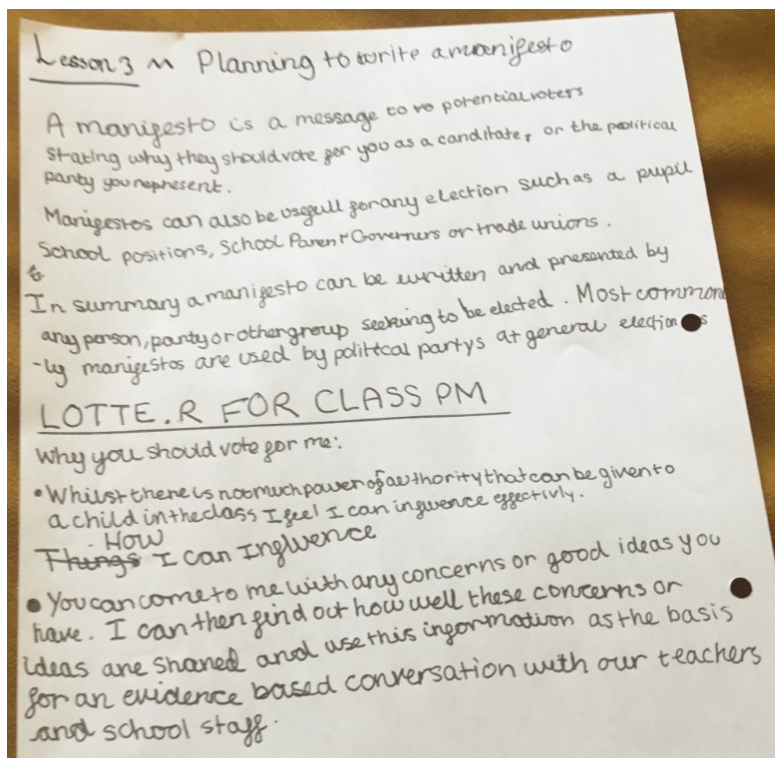 Lesson 3 ~ Planning to write a manifesto
A manifesto is a message to potential voters
stating why they should vote for you as a canditate, or the political
party you represent.
Manifestos can also be usefull for any election such as a pupil
School positions, School Parent Governers or trade unions.
In summary a manifesto can be written and presented by
any person, party or other group seeking to be elected. Most common
-ly manifestos are used by political partys at general elections
LOTTE.R FOR CLASS PM
Why you should vote for me:
• Whilst there is not much power of authority that can be given to
a child in the class I feel I can infwence effectivly.
Things How I can Infwence
• You can come to me with any concerns or good ideas you
have. I can then find out how well these concerns or
ideas are shared and use this information as the basis
for an evidence based conversation with our teachers
and school staff.